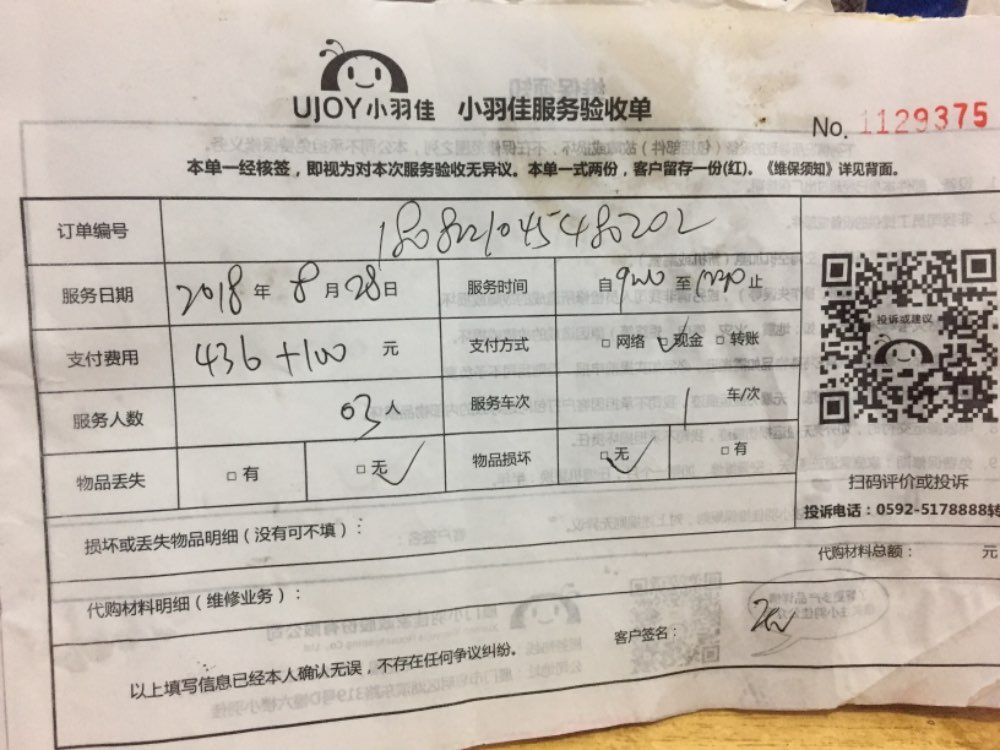 UJOY小羽佳 小羽佳服务验收单
No. 1129375
本单一经核签，即视为对本次服务验收无异议。本单一式两份，客户留存一份(红)。《维保须知》详见背面。
订单编号 180821045480202
服务日期 2018年8月28日 服务时间 自900至1220止
支付费用 436+100 元 支付方式 □网络 ☑现金 □转账
投诉或建议
服务人数 03人 服务车次 1 车/次
物品丢失 □有 □无✓ 物品损坏 □无✓ □有
扫码评价或投诉
投诉电话：0592-5178888转
损坏或丢失物品明细（没有可不填）：
代购材料总额： 元
代购材料明细（维修业务）：
客户签名：
以上填写信息已经本人确认无误，不存在任何争议纠纷。